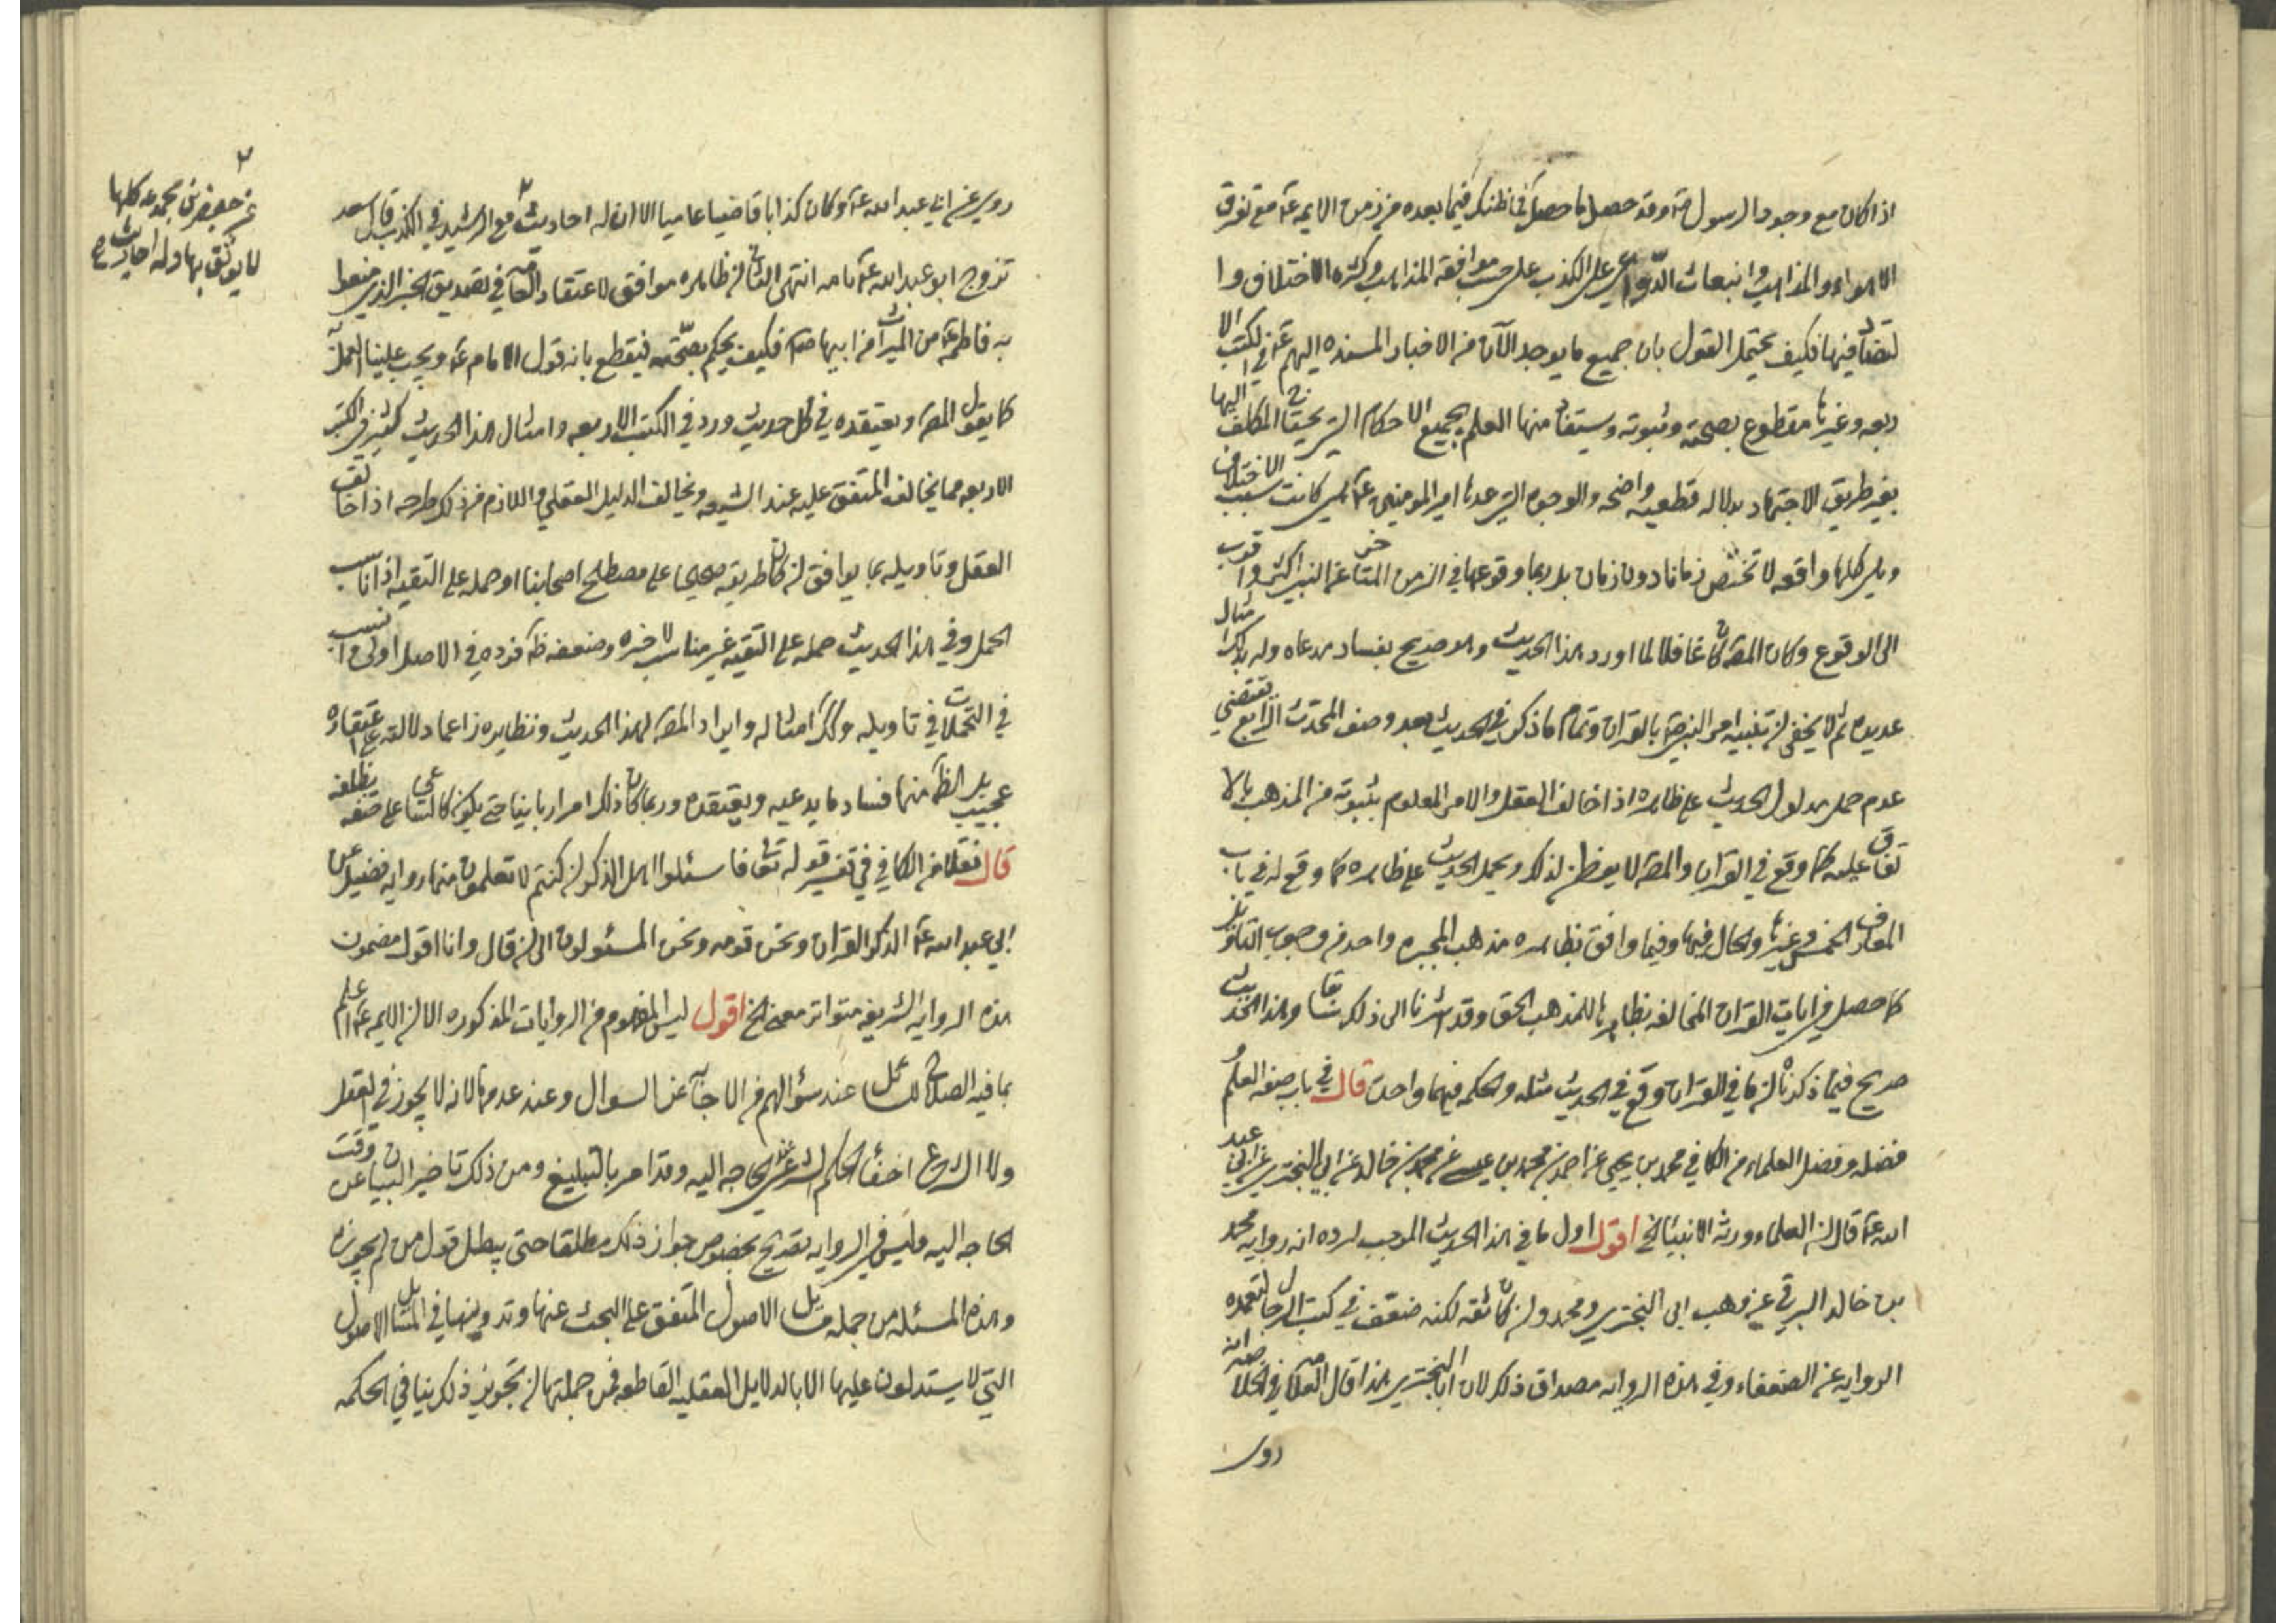 اذا كان مع وجود الرسول ص وقد حصل ما حصل فما ظنك فيما بعده من زمن الايمه ع مع تفرق
الاهواء والمذاهب وانبعاث الدواعي على الكذب على حسب موافقة المذاهب وكثره الاختلاف وا
لتضاد فيها فكيف يحتمل القول بان جميع ما يوجد الآن من الاخبار المسنده اليهم ع في الكتب الا
ربعه وغيرها مقطوع بصحته وثبوته ويستفاد منها العلم بجميع الاحكام التي يحتاج المكلف اليها
بغير طريق الاجتهاد بدلاله قطعيه واضحه والوجوه التي عدها امير المومنين ع التي كانت سبب الاختلاف
وهي كلها واقعه لا تختص زمانا دون زمان بل ربما وقوعها في الزمن المتاخر عن النبي اكثر واقرب
الى الوقوع وكان المصه كان غافلا لما اورد هذا الحديث وهو صريح بفساد مدعاه وله بذلك امثال
عديده ثم لا يخفى ان تشبيه امر النبي ص بالقرآن وتمام ما ذكر في الحديث بعد وصف المحدث الرابع يقتضي
عدم حمل مدلول الحديث على ظاهره اذا خالف العقل والامر المعلوم بثبوته من المذهب بالا
تفاق عليه كما وقع في القرآن والمصه لا يفطن لذلك ويحمل الحديث على ظاهره كما وقع له في باب
المعارف الخمس وغيرها والحال فيها وفيما وافق بظاهره مذهب المجبره واحد من وجوب التاويل
كما حصل في ايات القرآن المخالفه بظاهرها للمذهب الحق وقد اشرنا الى ذلك سابقا وهذا الحديث
صريح فيما ذكرناه ان ما في القرآن وقع في الحديث مثله والحكم فيهما واحد قال في باب صفه العلم و
فضله وفضل العلماء من الكافي محمد بن يحيى عن احمد بن محمد بن عيسى عن محمد بن خالد عن ابي البختري عن ابي عبد
الله ع قال ان العلماء ورثه الانبياء الخ اقول اول ما في هذا الحديث الموجب لرده انه روايه محمد
بن خالد البرقي عن وهب ابي البختري ومحمد وان كان ثقه لكنه ضعف في كتب الرجال لتعمده
الروايه عن الضعفاء وفي هذه الروايه مصداق ذلك لان ابا البختري هذا قال العلامه في الخلاصه انه
روى
روى عن ابي عبد الله ع وكان كذابا قاضيا عاميا الا ان له احاديث مع الرشيد في الكذب قال سعد
تزوج ابو عبد الله ع بامه انتهى الثاني ان ظاهره موافق لاعتقاد العامه في تصديق الخبر الذي منعوا
به فاطمه ع من الميراث من ابيها ص فكيف يحكم بصحته فيقطع بانه قول الامام ع ويجب علينا العمل به
كما يقول المصه ويعتقده في كل حديث ورد في الكتب الاربعه وامثال هذا الحديث كثير في الكتب
الاربعه مما يخالف المتفق عليه عند الشيعه ويخالف الدليل العقلي واللازم من ذلك طرحه اذا خالف
العقل وتاويله بما يوافق ان كان طريقه صحيحا على مصطلح اصحابنا او حمله على التقيه اذا ناسب
الحمل وفي هذا الحديث حمله على التقيه غير مناسب لاخره وضعفه ظ فرده في الاصل اولى وانسب
في التمحلات في تاويله وكذا امثاله وايراد المصه لهذا الحديث ونظايره زاعما دلالته على اعتقاده
عجيب بل الظ منها فساد ما يدعيه ويعتقده وربما كان ذلك امرا ربانيا حتى يكون كالساعي على حتفه بظلفه
قال نقلا من الكافي في تفسير قوله تعالى فاسئلوا اهل الذكر ان كنتم لا تعلمون منها روايه فضيل عن
ابي عبد الله ع الذكر القرآن ونحن قومه ونحن المسئولون الى ان قال وانا اقول مضمون
هذه الروايه الشريفه متواتر معنى الخ اقول ليس المفهوم من الروايات المذكوره الا ان الايمه ع اعلم
بما فيه الصلاح للسائل عند سؤالهم من الاجابه عن السوال وعند عدمها لانه لا يجوز في العقل
ولا الشرع اخفاء الحكم الشرعي عند الحاجه اليه وقد امر بالتبليغ ومن ذلك تاخير البيان عن وقت
الحاجه اليه وليس في الروايه تصريح بخصوص جواز ذلك مطلقا حتى يبطل قول من لم يجوزه
وهذه المسئله من جمله مسائل الاصول المتفق على البحث عنها وتدوينها في مسائل الاصول
التي لا يستدلون عليها الا بالدلايل العقليه القاطعه فمن جملتها ان تجويز ذلك ينافي الحكمه
عن جعفر بن محمد ع كلها
لا يوثق بها وله احاديث